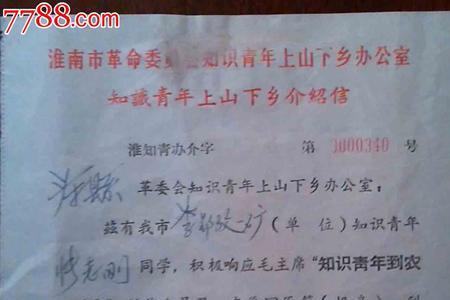 7788.com
淮南市革命委员会知识青年上山下乡办公室
知識青年上山下乡介紹信
淮知青办介字 第 3000340 号
革委会知识青年上山下乡办公室：
兹有我市 李郢孜一矿（单位）知识青年
同学，积极响应毛主席“知识青年到农